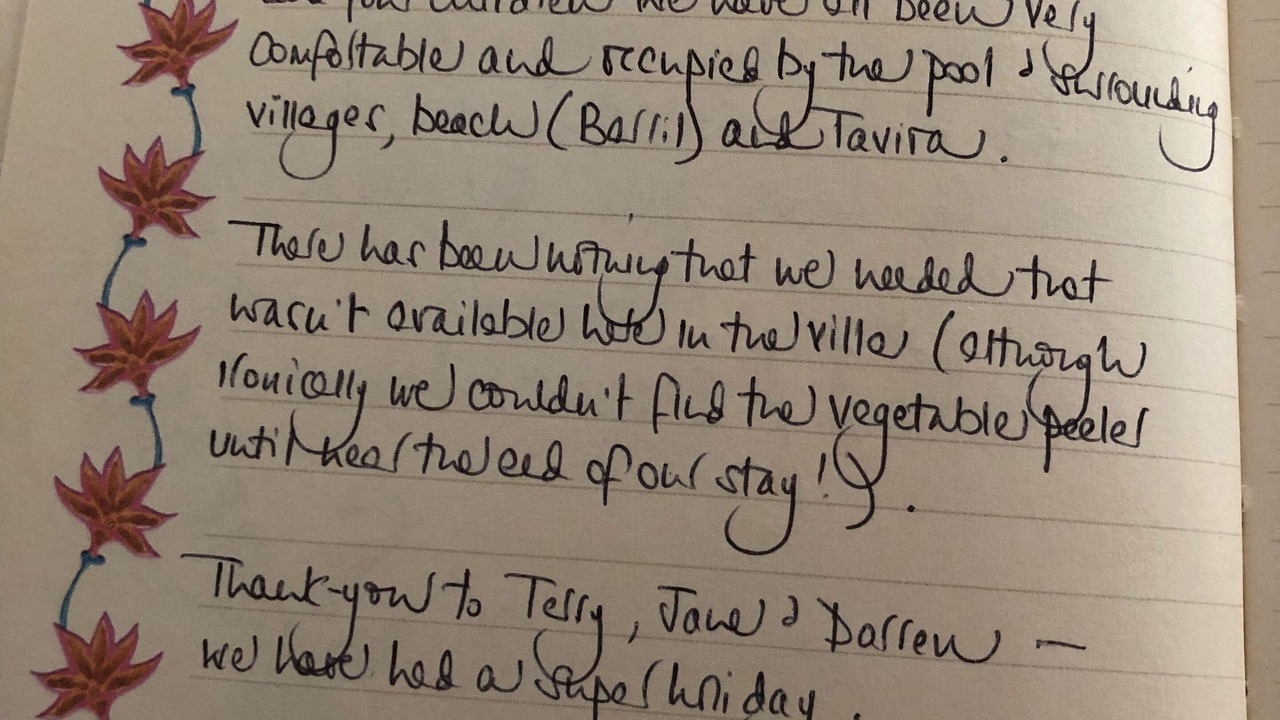 and four children we have all been very
comfortable and occupied by the pool & surrounding
villages, beach (Barril) and Tavira.
There has been nothing that we needed that
wasn't available here in the villa (although
ironically we couldn't find the vegetable peeler
until near the end of our stay!).
Thank-you to Terry, Jane & Darren —
we have had a super holiday.